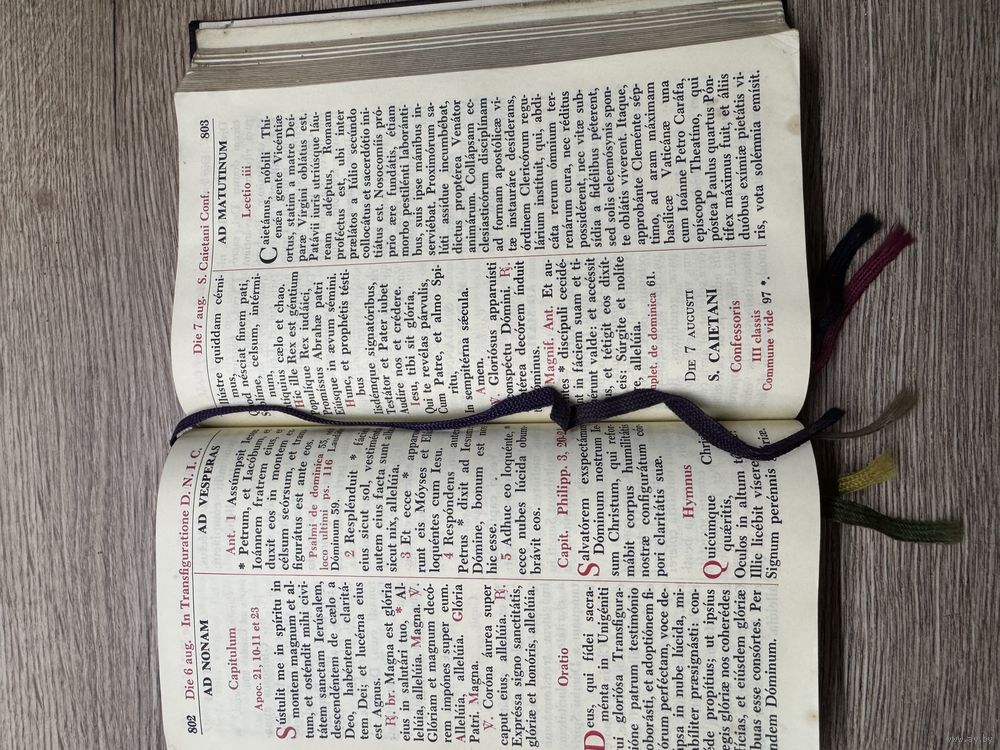 802 Die 6 aug. In Transfiguratione D. N. I. C.
AD NONAM
Capitulum
Apoc. 21, 10-11 et 23
Sústulit me in spíritu in
montem magnum et al-
tum, et osténdit mihi civi-
tátem sanctam Ierúsalem,
descendéntem de cælo a
Deo, habéntem claritá-
tem Dei; et lucérna eius
est Agnus.
℟. br. Magna est glória
eius in salutári tuo, * Al-
lelúia, allelúia. Magna. ℣.
Glóriam et magnum decó-
rem impónes super eum.
Allelúia, allelúia. Glória
Patri. Magna.
℣. Coróna áurea super
caput eius, allelúia. ℟.
Expréssa signo sanctitátis,
glóriæ et honóris, allelúia.
Oratio
Deus, qui fídei sacra-
ménta in Unigéniti
tui gloriósa Transfigura-
tióne patrum testimónio
roborásti, et adoptiónem fi-
liórum perféctam, voce de-
lápsa in nube lúcida, mi-
rabíliter præsignásti: con-
céde propítius; ut ipsíus
regis glóriæ nos coherédes
effícias, et eiúsdem glóriæ
tríbuas esse consórtes. Per
eúndem Dóminum.
AD VESPERAS
Ant. 1 Assúmpsit Iesus
* Petrum, et Iacóbum, et
Ioánnem fratrem eius, et
duxit eos in montem ex-
célsum seórsum, et trans-
figurátus est ante eos.
Psalmi de dominica 53,
loco ultimi ps. 116 Laudáte
Dóminum 59.
2 Resplénduit * fácies
eius sicut sol, vestiménta
autem eius facta sunt alba
sicut nix, allelúia.
3 Et ecce * apparu-
érunt eis Móyses et Elías
loquéntes cum Iesu.
4 Respóndens autem
Petrus * dixit ad Iesum:
Dómine, bonum est nos
hic esse.
5 Adhuc eo loquénte, *
ecce nubes lúcida obum-
brávit eos.
Capit. Philipp. 3, 20-21
Salvatórem exspectámus
Dóminum nostrum Ie-
sum Christum, qui refor-
mábit corpus humilitátis
nostræ configurátum cór-
pori claritátis suæ.
Hymnus
Quicúmque Christum
quǽritis,
Oculos in altum tóllite:
Illic licébit vísere
Signum perénnis glóriæ.
Die 7 aug. S. Caietani Conf. 803
Illústre quiddam cérni-
mus,
Quod nésciat finem pati,
Sublíme, celsum, intérmi-
num,
Antíquius cælo et chao.
Hic ille Rex est géntium
Populíque Rex iudáici,
Promíssus Abrahæ patri
Eiúsque in ævum sémini.
Hunc, et prophétis tésti-
bus
Iisdémque signatóribus,
Testátor et Pater iubet
Audíre nos et crédere.
Iesu, tibi sit glória,
Qui te revélas párvulis,
Cum Patre, et almo Spí-
ritu,
In sempitérna sǽcula.
Amen.
℣. Gloriósus apparuísti
in conspéctu Dómini. ℟.
Proptérea decórem índuit
te Dóminus.
Ad Magnif. Ant. Et au-
diéntes * discípuli cecidé-
runt in fáciem suam et ti-
muérunt valde: et accéssit
Iesus, et tétigit eos dixít-
que eis: Súrgite et nolíte
timére, allelúia.
Complet. de dominica 61.
DIE 7 AUGUSTI
S. CAIETANI
Confessoris
III classis
Commune vide 97 *.
AD MATUTINUM
Lectio iii
Caietánus, nóbili Thi-
enǽa gente Vicéntiæ
ortus, statim a matre Dei-
paræ Vírgini oblátus est.
Patávii iuris utriúsque láu-
ream adéptus, Romam
proféctus est, ubi inter
prælátos a Iúlio secúndo
collocátus et sacerdótio ini-
tiátus est. Nosocomíis pró-
prio ære fundátis, étiam
morbo pestilénti laboránti-
bus, suis ipse mánibus in-
serviébat. Proximórum sa-
lúti assídue incumbébat,
dictus proptérea Venátor
animárum. Collápsam ec-
clesiasticórum disciplínam
ad formam apostólicæ vi-
tæ instauráre desíderans,
órdinem Clericórum regu-
lárium instítuit, qui, abdi-
cáta rerum ómnium ter-
renárum cura, nec réditus
possidérent, nec vitæ sub-
sídia a fidélibus péterent,
sed solis eleemósynis spon-
te oblátis víverent. Itaque,
approbánte Cleménte sép-
timo, ad aram máximam
basílicæ Vaticánæ una
cum Ioánne Petro Caráfa,
epíscopo Theatíno, qui
póstea Paulus quartus Pón-
tifex máximus fuit, et áliis
duóbus exímiæ pietátis vi-
ris, vota solémnia emísit.
www.ay.by